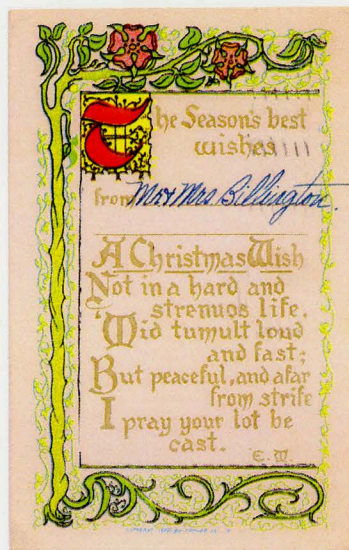 The Season's best
wishes
from Mr & Mrs Billington.
A Christmas Wish
Not in a hard and
strenuos life.
'Mid tumult loud
and fast;
But peaceful, and afar
from strife
I pray your lot be
cast.
E. W.